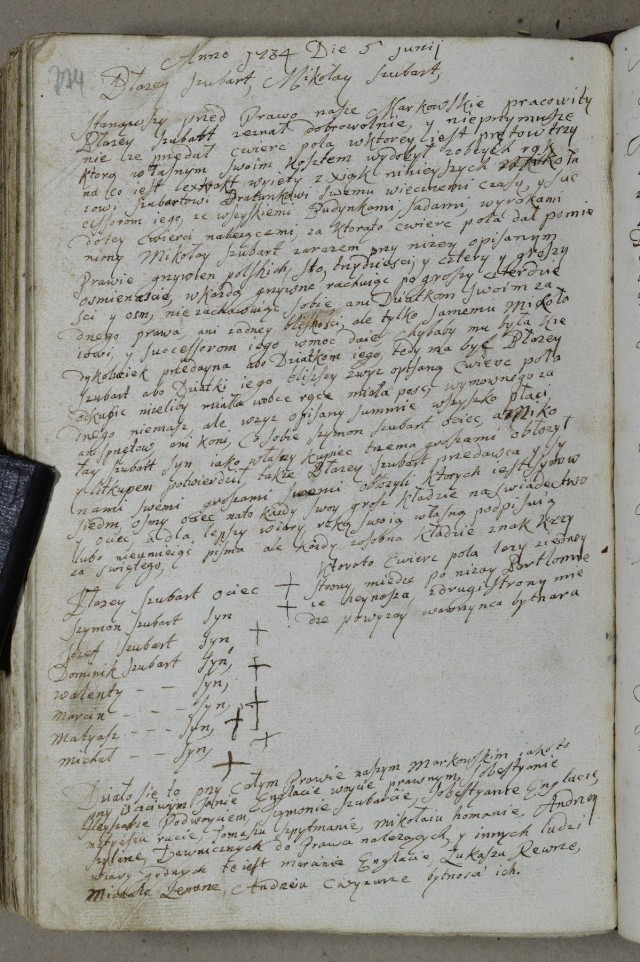 Anno 1734 Die 5 Junij
734
Błazey Szubart, Mikołay Szubart,
Stanąwszy przed Prawo nasze Markowskie pracowity
Błazey Szubart zeznał dobrowolnie, y nieprzymusze
nie ze przedał cwierc pola w ktorey jest prętow trzy
ktorą własnym swoim kosztem wydobył z obcych rąk
na co jest extrakt wyięty z xiąk ninieyszych Mikoła
iowi Szubartowi Bratunkowi swemu wiecznemi czasy, y suc
cessorom iego, ze wszyskiemi Budynkami, Sadami, wyrokami
do tey cwierci nalezącemi, za ktorąto cwierc pola dał pomie
niony Mikołay Szubart zarazem przy nizey opisanym
Prawie grzywien polskich, sto, trzydziesci, y cztery y groszy
osmienascie, w kazdą grzywne rachuiąc po groszy czterdzie
sci y osm, nie zachowuiąc sobie ani Dziatkom swoim za
dnego prawa, ani zadney bliskosci, ale tylko samemu Mikoła
iowi, y successorom iego w moc daie, chybaby mu była kie
dykolwiek przedayna abo Dziatkom iego, tedy ma być Błazey
Szubart abo Dziatki iego bliszszy zwyz opisaną cwierc pola
odkupic nizeliby miała w obce ręce
dnego niemasz, ale wzyz opisany summie wszysko płaci
ani koni, Szymon Szubart ociec, a Miko
łay Szubart Syn iako własny kupiec trzema groszami obłozył
y litkupem potwierdził, takze Błazey Szubart przedawca z Sy
nami swemi groszami swemi obłozyli ktorych iest Synow
siedm, osmy ociec na to kazdy swoy grosz kładzie na swiadectwo
y ociec a dla lepszy wiary ręką swoią własną podpisuią
lubo nieumieiąc pisma ale kazdy zosobna kładzie znak krzy
za swiętego,
Ktorato cwierc pola lezy z iedney
Błazey Szubart ociec + strony miedze po nizay Bartłomie
Szymon Szubart Syn + ie Reynosza, z drugi strony mie
Jozef Szubart Syn, + dze powyzay wawrzynca bytnara
Dominik Szubart Syn, +
walenty - - Syn, +
Marcin - - - Syn, +
Matyasz - - - Syn, +
michał - - Syn, +
Działo się to przy całym Prawie naszym Markowskim, iako to
przy Uczciwym Englacie woycie prawnym, Sebestyanie
Podwoycem, Szymonie Szubarcie, Sebestyanie Englacie,
Matyaszu Tomaszu Szpytmanie, Mikołaiu Homanie, Andrzeiu
Dawnicznych do Prawa nalezących, y innych ludzi
wiary godnych to iest Marcinie Englacie, Łukaszu Rewrze,
Michale Andrzeiu bytnosci ich.